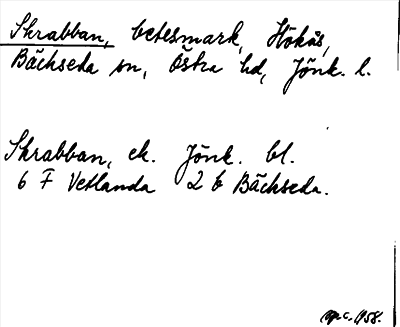 Skrabban, betesmark, Hökås,
Bäckseda sn, Östra hd, Jönk. l.
Skrabban, ek. Jönk. bl.
6 F Vetlanda 2 b Bäckseda.
1958.